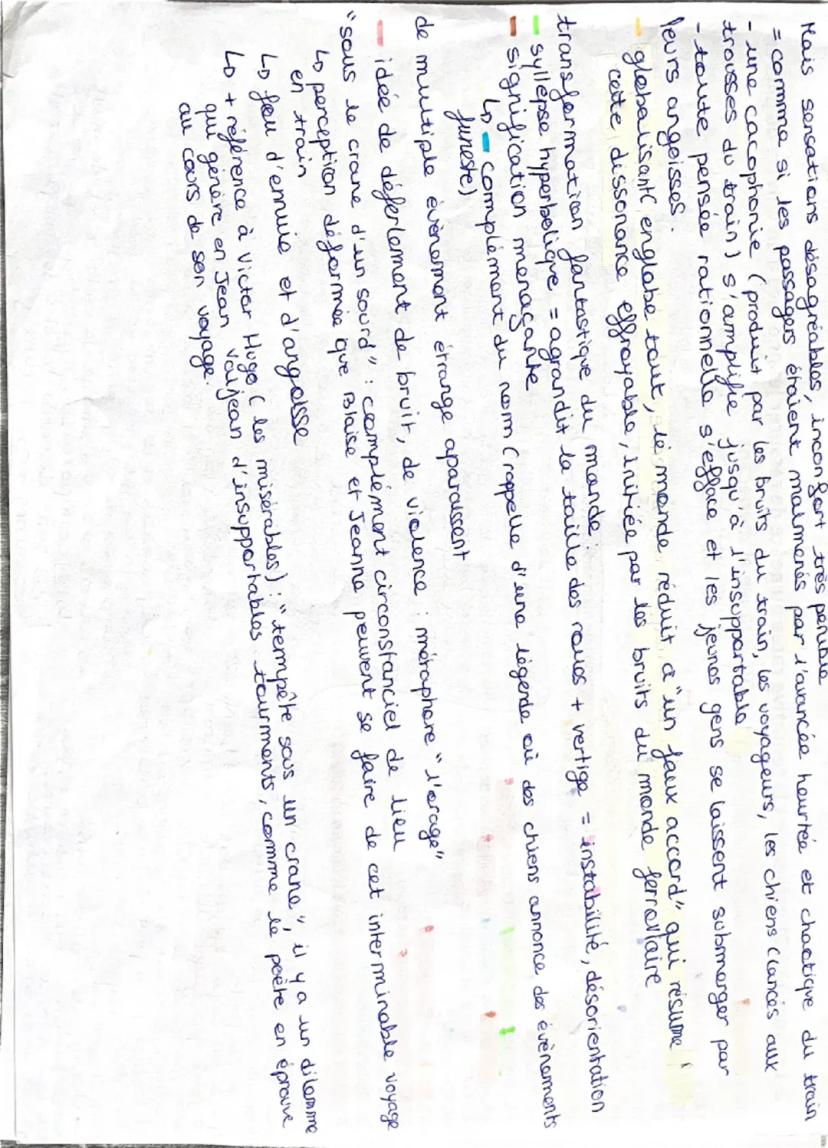 Mais sensations désagréables, inconfort très pénible
= comme si les passagers étaient malmenés par l'avancée heurtée et chaotique du train
- une cacophonie (produit par les bruits du train, les voyageurs, les chiens lancés aux
trousses du train) s'amplifie jusqu'à l'insupportable
- toute pensée rationnelle s'efface et les jeunes gens se laissent submerger par
leurs angoisses.
- globalisant, englobe tout, le monde réduit à "un faux accord" qui résume
cette dissonance effroyable, initiée par les bruits du monde ferroviaire
transformation fantastique du monde :
- syllepse hyperbolique = agrandit la taille des roues + vertige = instabilité, désorientation
- signification menaçante
↳ - complément du nom (rappelle d'une légende où des chiens annonce des évènements
funeste)
de multiple évènement étrange aparaissent
- idée de déferlement de bruit, de violence : métaphore "l'orage"
"sous le crane d'un sourd" : complément circonstanciel de lieu
↳ perception déformée que Blaise et Jeanne peuvent se faire de cet interminable voyage
en train
↳ feu d'ennuie et d'angoisse
↳ + référence à Victor Hugo (les misérables) : "tempête sous un crane", il y a un dilemme
qui génère en Jean Valjean d'insupportables tourments, comme le poète en éprouve
au cours de son voyage.